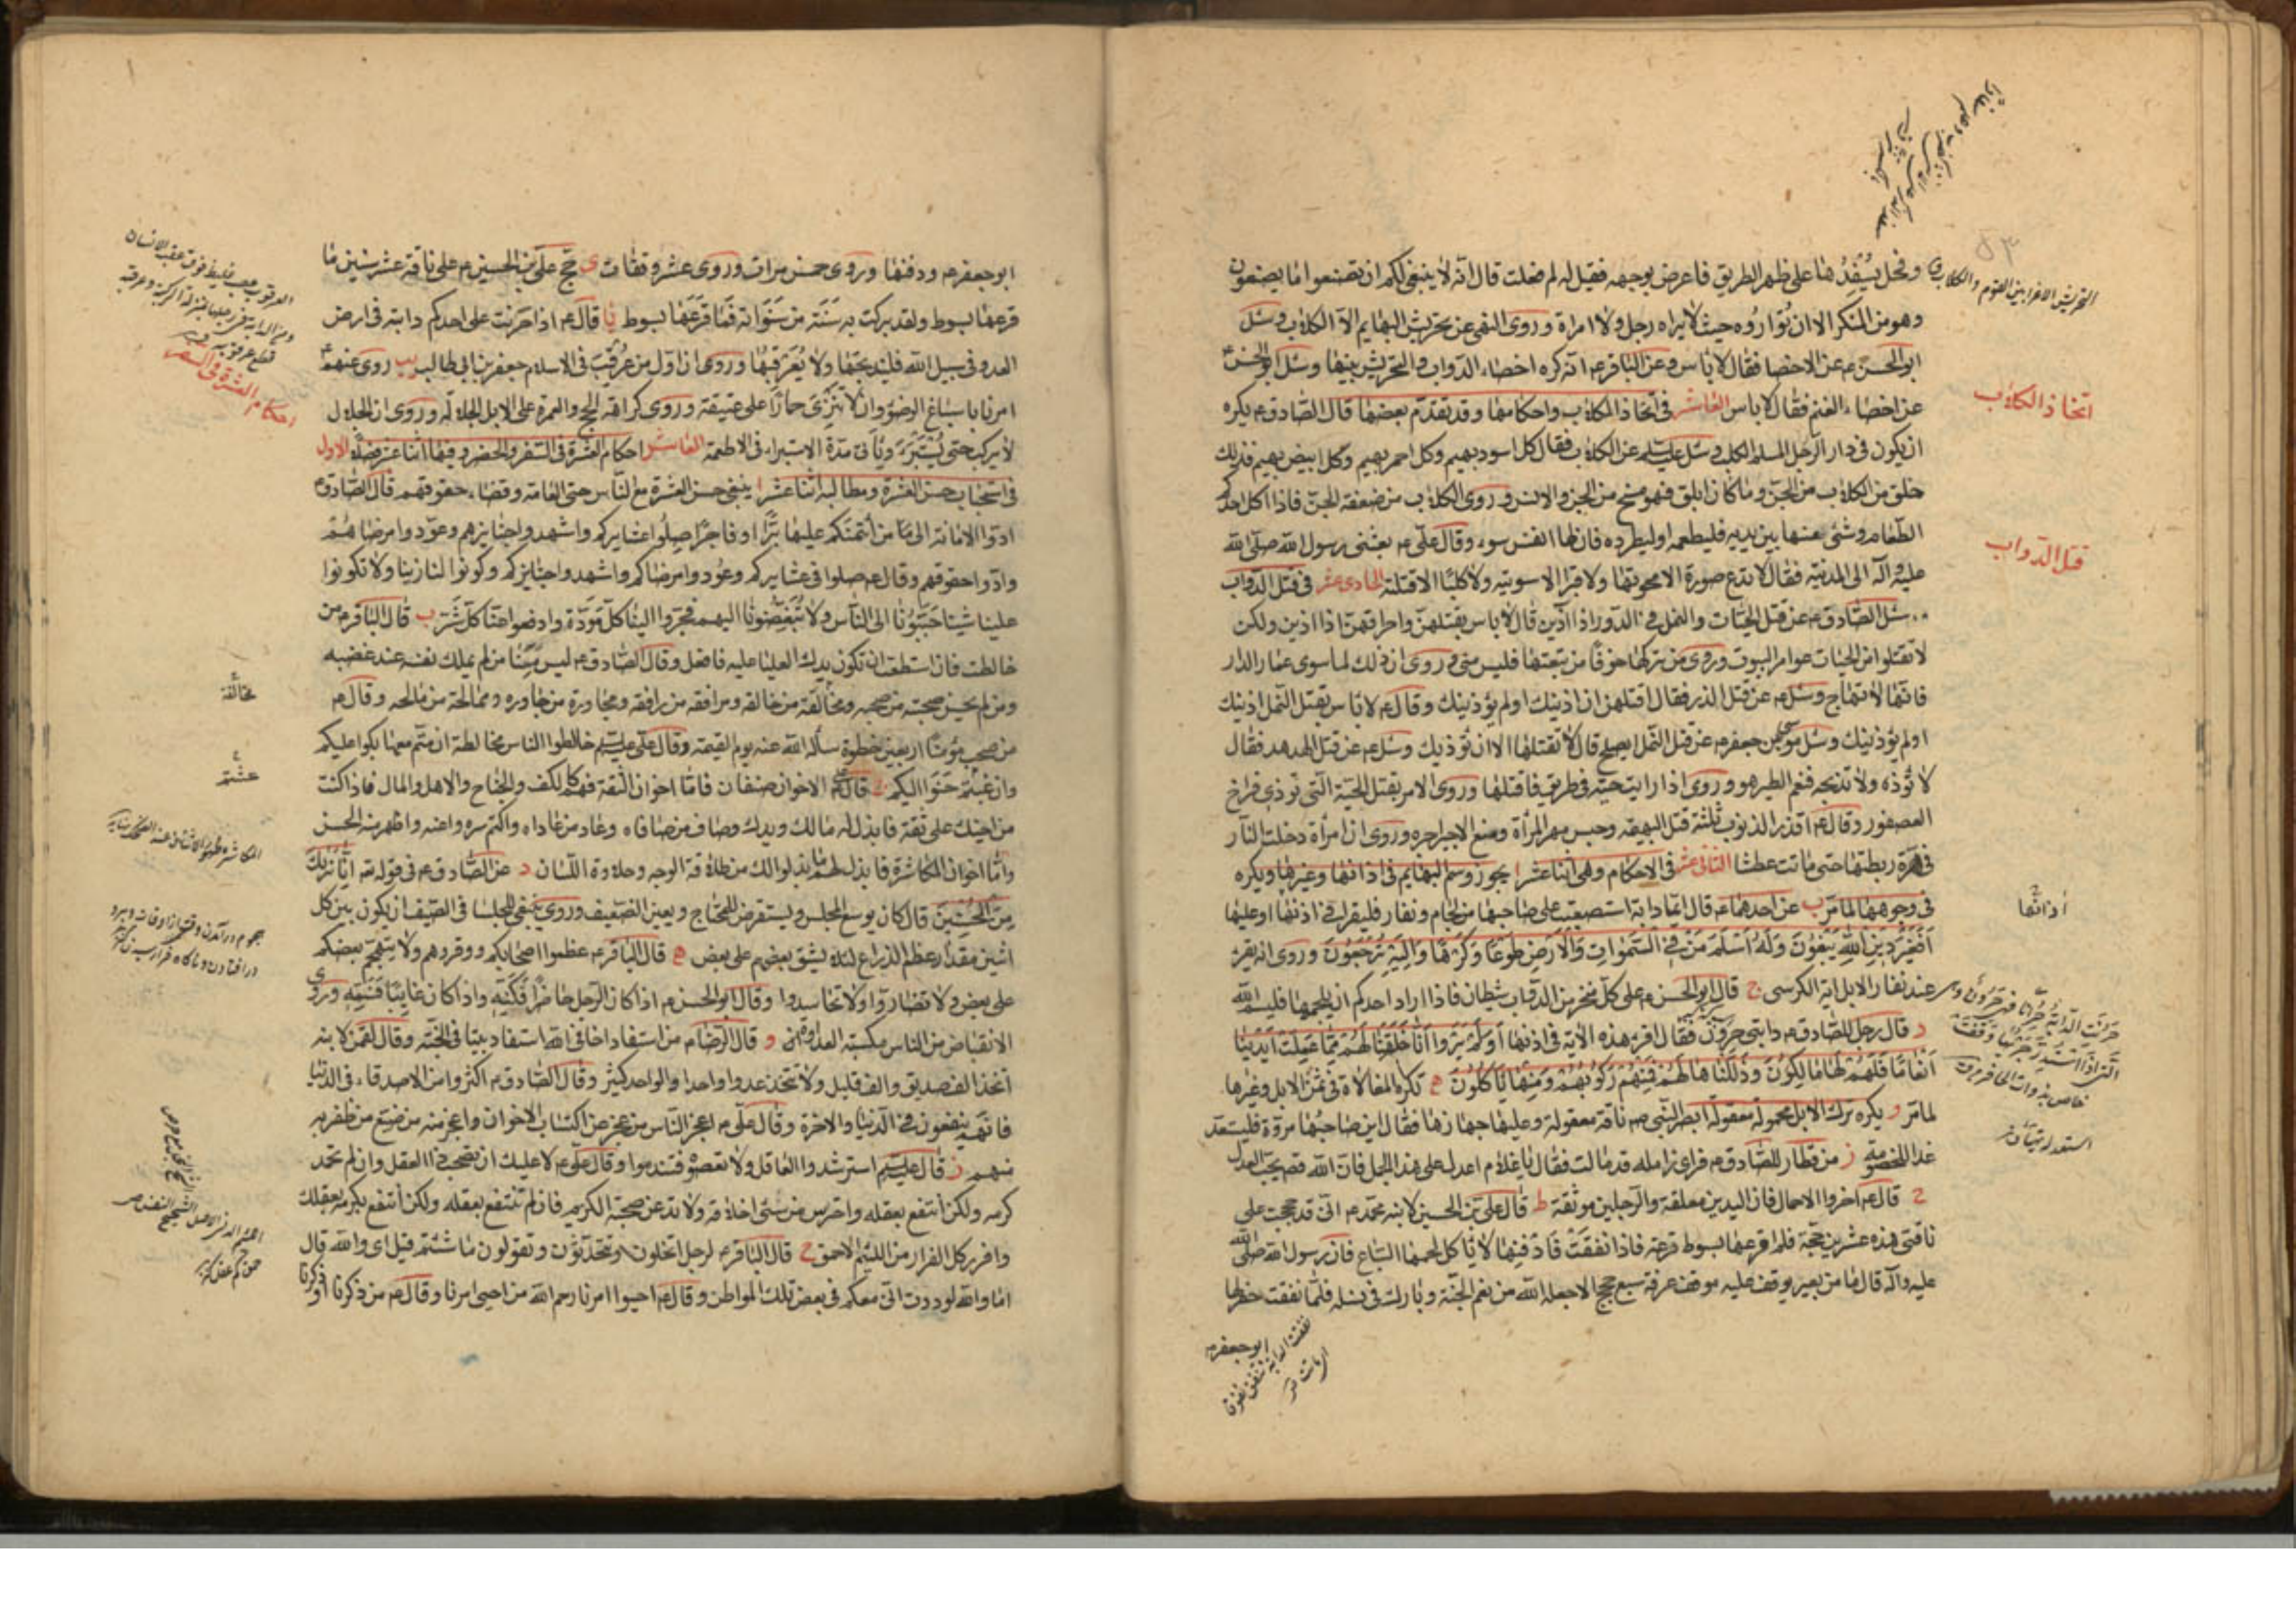 وفحل يسفدها على ظهر الطريق فاعرض بوجهه فقيل له لم فعلت قال انه لا ينبغى لكم ان تصنعوا ما يصنعون
وهو من المنكر الا ان تواروه حيث لا يراه رجل ولا امراة وروى النهى عن تحريش البهايم الا الكلاب وسئل
ابو الحسن ع عن الاخصا فقال لا باس وعن الباقر ع انه كره اخصاء الدواب والتحريش بينها وسئل ابو الحسن ع
عن اخصاء الغنم فقال لا باس العاشر فى اتخاذ الكلاب واحكامها وقد تقدم بعضها قال الصادق ع يكره
ان يكون فى دار الرجل المسلم الكلب وسئل عليه السلم عن الكلاب فقال كل اسود بهيم وكل احمر بهيم وكل ابيض بهيم فذلك
خلق من الكلاب من الجن وما كان ابلق فهو مسخ من الجن والانس وروى الكلاب من ضعفة الجن فاذا اكل احدكم
الطعام وشئ منها بين يديه فليطعمه او ليطرده فان لها انفس سوء وقال على ع بعثنى رسول الله صلى الله
عليه وآله الى المدينة فقال لا تدع صورة الا محوتها ولا قبرا الا سويته ولا كلبا الا قتلته الحادى عشر فى قتل الدواب
سئل الصادق ع عن قتل الحيات والنمل فى الدور اذا آذين قال لا باس بقتلهن واحراقهن اذا اذين ولكن
لا تقتلوا من الحيات عوامر البيوت وروى من تركها خوفا من تبعتها فليس منى وروى ان ذلك لما سوى عمار الدار
فانها لا تهاج وسئل ع عن قتل الذر فقال اقتلهن ان اذينك او لم يؤذينك وقال ع لا باس بقتل النمل اذينك
او لم يؤذينك وسئل موسى بن جعفر ع عن قتل النمل ايصلح قال لا تقتلها الا ان تؤذيك وسئل ع عن قتل الهدهد فقال
لا تؤذه ولا تذبحه فنعم الطير هو وروى اذا رايت حية فى طريق فاقتلها وروى الامر بقتل الحية التى تؤذى فراخ
العصفور وقال ع اقذر الذنوب ثلثة قتل البهيمة وحبس مهر المرأة ومنع الاجير اجره وروى ان امرأة دخلت النار
فى هرة ربطتها حتى ماتت عطشا الثانى عشر فى الاحكام وهى اثنا عشر ا يجوز وسم البهايم فى اذانها وغيرها ويكره
فى وجوهها لما مر ب عن احدهما ع قال ايما دابة استصعبت على صاحبها من لجام ونفار فليقرا فى اذنها او عليها
افغير دين الله يبغون وله اسلم من فى السموات والارض طوعا وكرها واليه ترجعون وروى انه يقرء
عند نفار الابل اية الكرسى ج قال ابو الحسن ع على كل منخر من الدواب شيطان فاذا اراد احدكم ان يلجمها فليسم الله
د قال رجل للصادق ع دابتى حرون فقال اقرء هذه الاية فى اذنها اولم يروا انا خلقنا لهم مما عملت ايدينا
انعاما فهم لها مالكون وذللناها لهم فمنهم ركوبهم ومنها ياكلون ه تكره المغالاة فى ثمن الابل وغيرها
لما مر و يكره ترك الابل محمولة معقولة ابصر النبى ص ناقة معقولة وعليها جهازها فقال اين صاحبها مروه فليستعد
غدا للخصومة ز مر قطار للصادق ع فراى زاملة قد مالت فقال يا غلام اعدل على هذا الجمل فان الله تعالى يحب العدل
ح قال ع اخروا الاحمال فان اليدين معلقة والرجلين موثقة ط قال على بن الحسين لابنه محمد ع انى قد حججت على
ناقتى هذه عشرين حجة فلم اقرعها بسوط قرعة فاذا نفقت فادفنها لا ياكل لحمها السباع فان رسول الله صلى الله
عليه واله قال ما من بعير يوقف عليه موقف عرفة سبع حجج الا جعله الله من نعم الجنة وبارك فى نسله فلما نفقت حفر لها
ابو جعفر ع
اتخاذ الكلاب
قتل الدواب
اذانها
ابو جعفر ع ودفنها وروى خمس مرات وروى عشر وقفات ى حج على بن الحسين ع على ناقة عشر سنين ما
قرعها بسوط ولقد بركت به سنة من سنواته فما قرعها بسوط يا قال ع اذا حرنت على احدكم دابته فى ارض
العدو فى سبيل الله فليذبحها ولا يعرقبها وروى ان اول من عرقب فى الاسلام جعفر بن ابى طالب يب روى عنهم ع
امرنا باسباغ الوضوء وان لا ننزى حمارا على عتيقة وروى كراهة الحج والعمرة على الابل الجلالة وروى ان الجلال
لا يركب حتى يستبرء وياتى مدة الاستبراء فى الاطعمة العاشر احكام العشرة فى السفر والحضر وفيها اثنا عشر فصلا الاول
فى استحباب حسن العشرة ومطالبه اثنا عشر ا ينبغى حسن العشرة مع الناس حتى العامة وقضاء حقوقهم قال الصادق ع
ادوا الامانة الى من ائتمنكم عليها برا او فاجرا صلوا عشايركم واشهدوا جنايزهم وعودوا مرضاهم
وادوا حقوقهم وقال ع صلوا فى عشايركم وعودوا مرضاكم واشهدوا جنايزكم وكونوا لنا زينا ولا تكونوا
علينا شينا حببونا الى الناس ولا تبغضونا اليهم فجروا الينا كل مودة وادفعوا عنا كل شر ب قال الباقر ع من
خالطت فان استطعت ان تكون يدك العليا عليه فافعل وقال الصادق ع ليس منا من لم يملك نفسه عند غضبه
ومن لم يحسن صحبة من صحبه ومخالقة من خالقه ومرافقة من رافقه ومجاورة من جاوره وممالحة من مالحه وقال ع
من صحب مؤمنا اربعين خطوة سأله الله عنه يوم القيمة وقال على عليه السلم خالطوا الناس مخالطة ان متم معها بكوا عليكم
وان غبتم حنوا اليكم ج قال ع الاخوان صنفان فاما اخوان الثقة فهم كالكف والجناح والاهل والمال فاذا كنت
من اخيك على ثقة فابذل له مالك ويدك وصاف من صافاه وعاد من عاداه واكتم سره واعنه واظهر منه الحسن
واما اخوان المكاشرة فابذل لهم ما بذلوا لك من طلاقة الوجه وحلاوة اللسان د عن الصادق ع فى قوله تعالى انا نريك
من المحسنين قال كان يوسع المجلس ويستقرض للمحتاج ويعين الضعيف وروى ينبغى للجلسا فى الصيف ان يكون بين كل
اثنين مقدار عظم الذراع لئلا يشق بعضهم على بعض ه قال الباقر ع عظموا اصحابكم ووقروهم ولا يتهجم بعضكم
على بعض ولا تضاروا ولا تحاسدوا وقال ابو الحسن ع اذا كان الرجل حاضرا فكنه واذا كان غايبا فسمه وروى
الانقباض من الناس مكسبة العداوة و قال الرضا ع من استفاد اخا فى الله استفاد بيتا فى الجنة وقال لقمن لابنه
اتخذ الف صديق والف قليل ولا تتخذ عدوا واحدا والواحد كثير وقال الصادق ع اكثروا من الاصدقاء فى الدنيا
فانهم ينفعون فى الدنيا والاخرة وقال على ع اعجز الناس من عجز عن اكتساب الاخوان واعجز منه من ضيع من ظفر به
منهم ز قال عليه السلم استرشدوا العاقل ولا تعصوه فتندموا وقال على ع لا عليك ان تصحب ذا العقل وان لم تحمد
كرمه ولكن انتفع بعقله واحترس من سئ اخلاقه ولا تدعن صحبة الكريم فان لم تنتفع بعقله ولكن انتفع بكرمه بعقلك
وافرر كل الفرار من اللئيم الاحمق ح قال الباقر ع لرجل اتخلون وتتحدثون وتقولون ما شئتم قيل اى والله قال
اما والله لوددت انى معكم فى بعض تلك المواطن وقال ع احيوا امرنا رحم الله من احيى امرنا وقال ع من ذكرنا او ذكرنا
احكام العشرة فى السفر
مخالقة